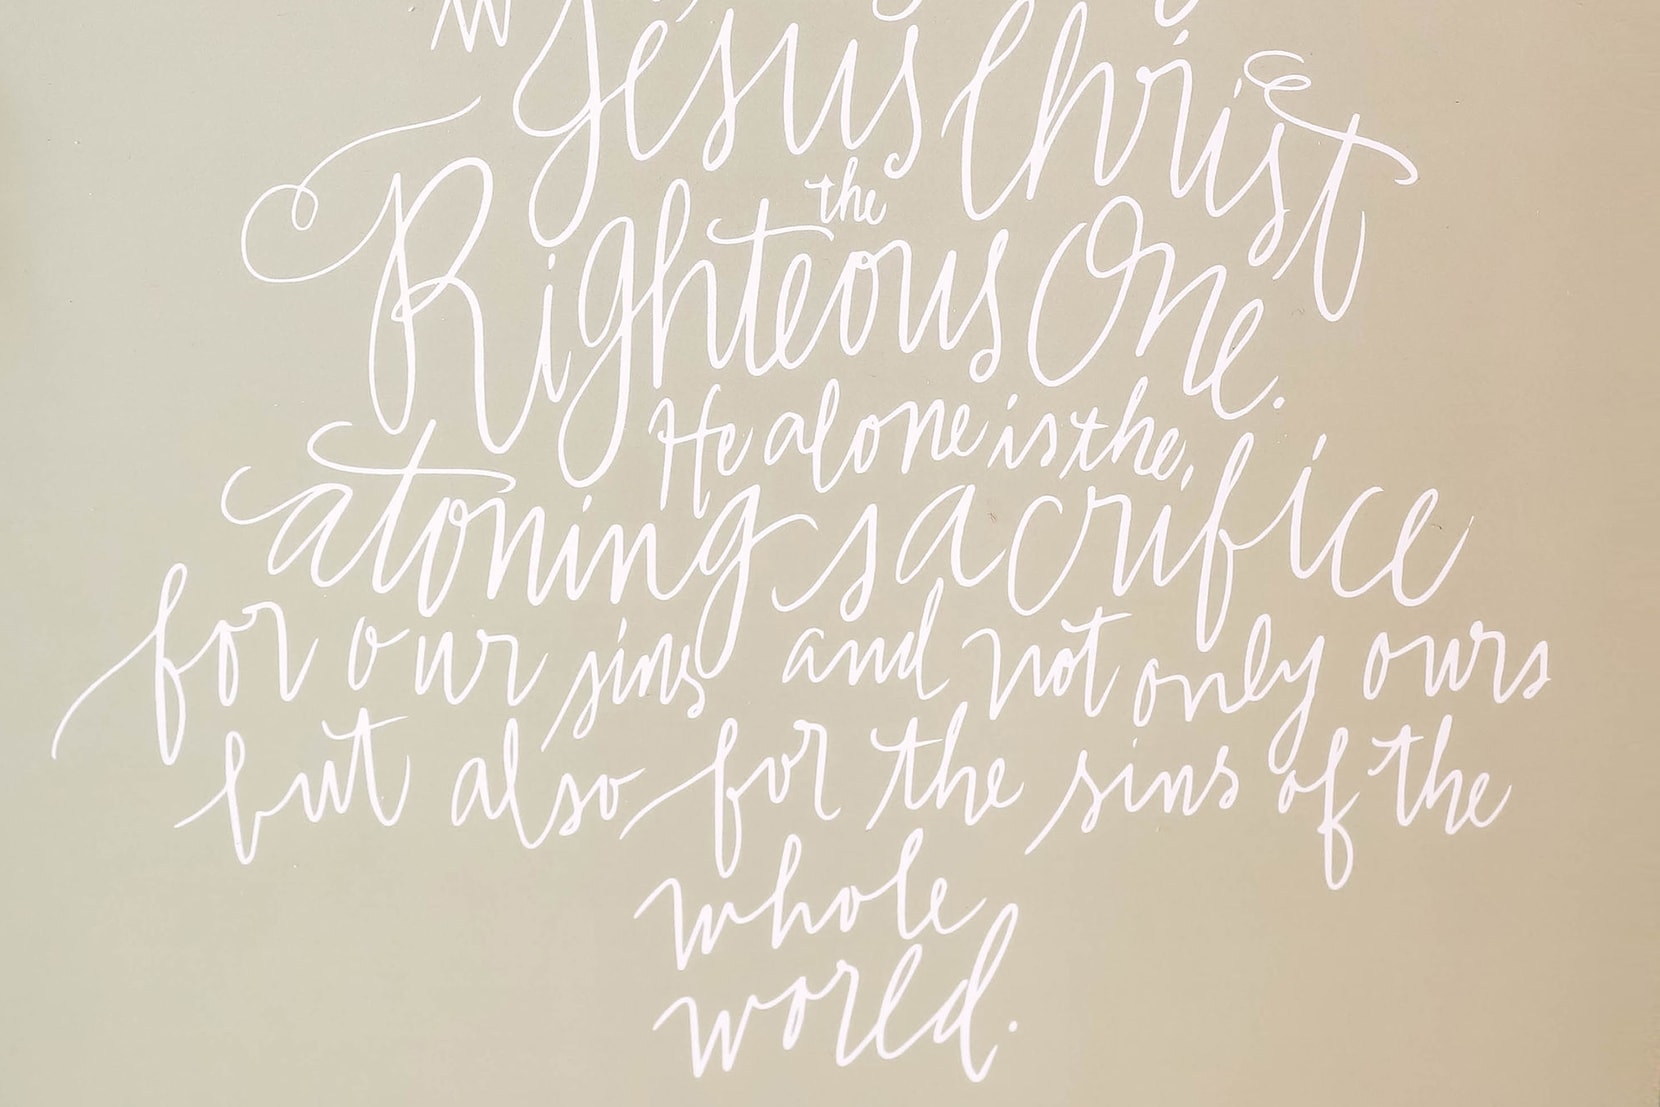 Jesus Christ
the
Righteous One.
He alone is the
atoning sacrifice
for our sins and not only ours
but also for the sins of the
whole
world.